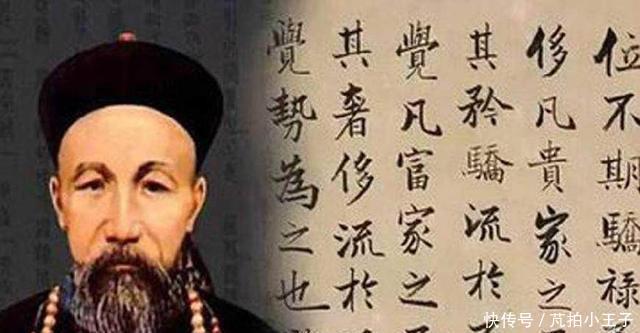 位不期驕祿
侈凡貴家之
其矜驕流於
覺凡富家之
其奢侈流於
覺勢為之也
快传号/芃拍小王子